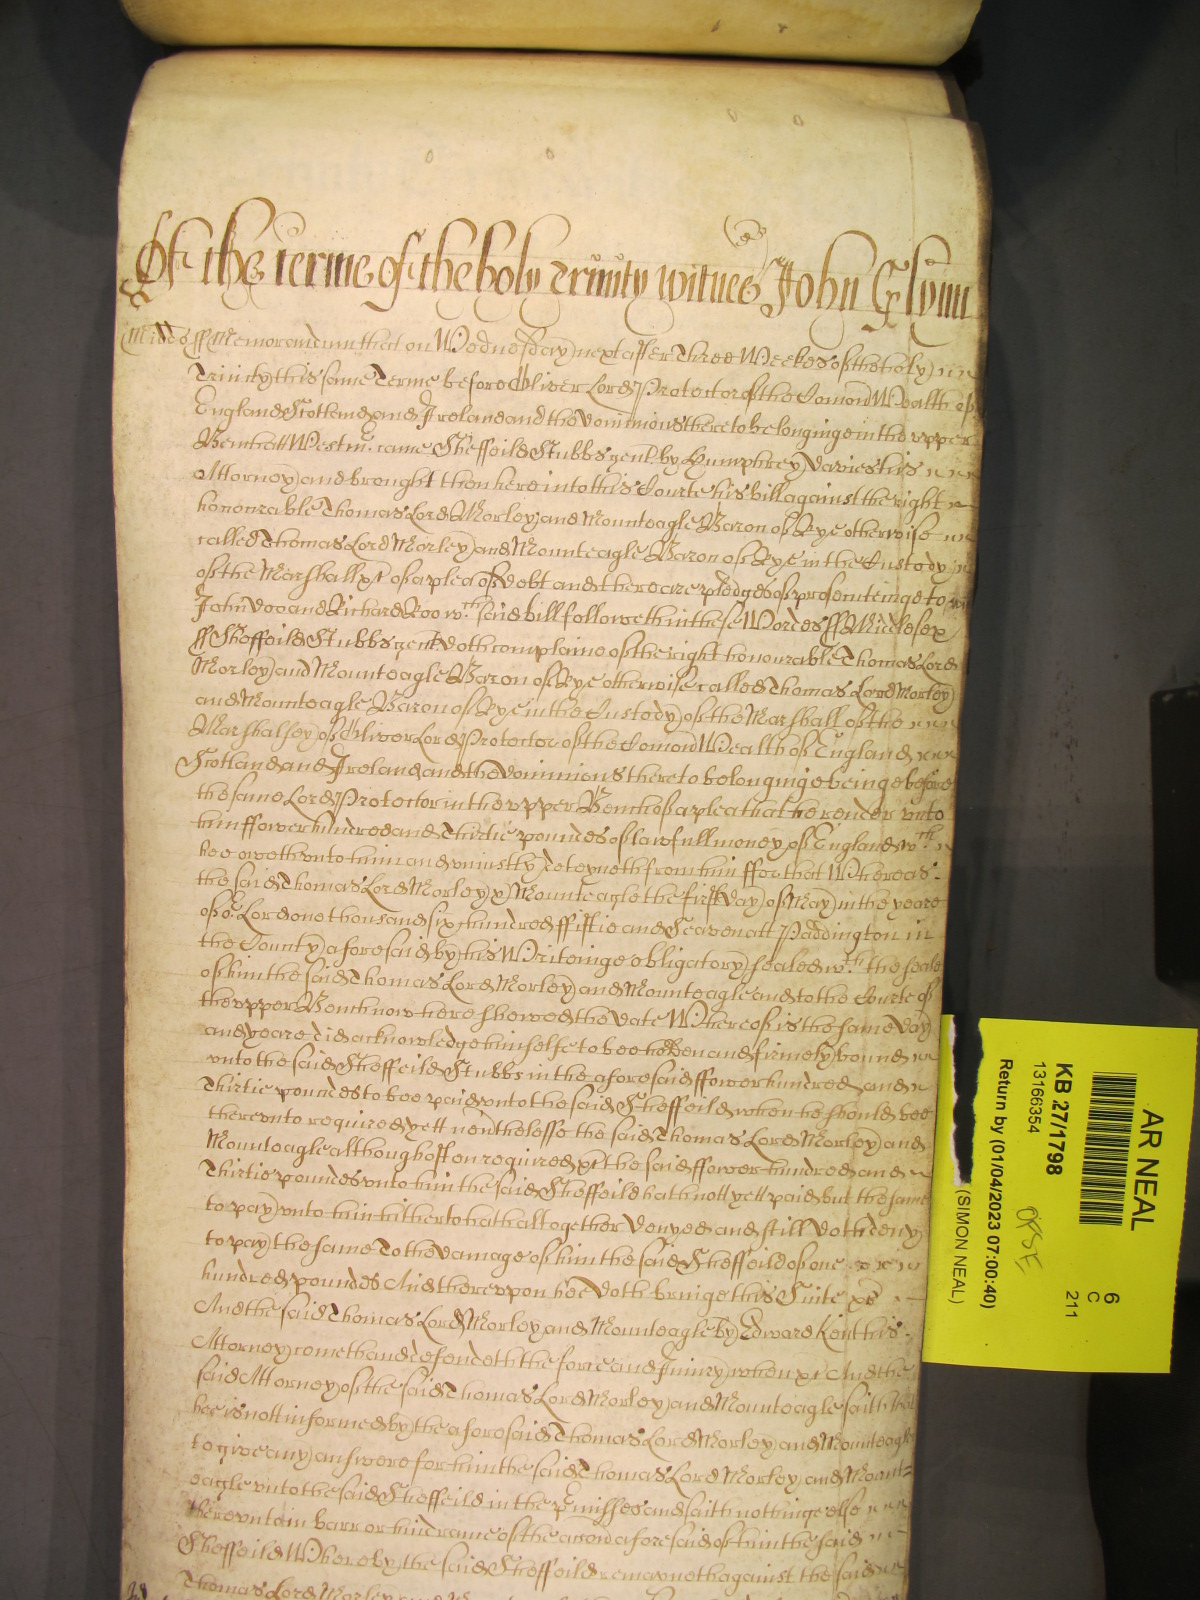 Of the terme of the holy Trinity witnes John Glynn
Midds ss Memorandum that on Wednesday next after Three Weekes of the holy
Trinity this same Terme before Oliver Lord Protector of the Comon Wealth of
England Scotland and Ireland and the Dominions thereto belonginge in the vpper
Bench att Westm. came Sheffeild Stubbs gent. by Humphrey Davies his
Attorney and brought then here into this Courte his bill against the right
honourable Thomas Lord Morley and Mounteagle Baron of Rye otherwise
called Thomas Lord Morley and Mounteagle Baron of Rye in the Custody
of the Marshall &c of a plea of Debt and there are pledges of prosecuteinge to
John Doo and Richard Roo wth. said bill followeth in these Wordes ss Middlesex
ss Sheffeild Stubbs gent doth complaine of the right honourable Thomas Lord
Morley and Mounteagle Baron of Rye otherwise called Thomas Lord Morley
and Mounteagle Baron of Rye in the Custody of the Marshall of the
Marshalsey of Oliver Lord Protector of the Comon Wealth of England
Scotland and Ireland and the Dominions thereto belonginge beinge before
the same Lord Protector in the vpper Bench of a plea that he render vnto
him ffower hundred and Thirtie poundes of lawfull money of England wth
hee oweth vnto him and vniustly deteyneth from him ffor that Whereas
the said Thomas Lord Morley & Mounteagle the first day of May in the yeare
of or. Lord one thousand six hundred fiftie and Seaven att Paddington in
the County aforesaid by his Writeinge obligatory sealed wth. the seale
of him the said Thomas Lord Morley and Mounteagle and to the Courte of
the vpper Bench now here shewed the date Whereof is the same day
and yeare did acknowledge himselfe to bee holden and firmely bound
vnto the said Sheffeild Stubbs in the aforesaid ffower hundred and
Thirtie poundes to bee paid vnto the said Sheffeild when he should bee
therevnto required yett neverthelesse the said Thomas Lord Morley and
Mounteagle although often required &c the said ffower hundred and
Thirtie poundes vnto him the said Sheffeild hath nott yett paid but the same
to pay vnto him hitherto hath altogether denyed and still doth deny
to pay the same To the damage of him the said Sheffeild of one
hundred poundes And therevpon hee doth bringe this Suite &c
And the said Thomas Lord Morley and Mounteagle by Edward Kent his
Attorney cometh and defendeth the force and Iniury when &c And the
said Attorney of the said Thomas Lord Morley and Mounteagle saith that
hee is nott informed by the aforesaid Thomas Lord Morley and Mounteagle
to give any answere for him the said Thomas Lord Morley and Mount=
eagle vnto the said Sheffeild in the pmisses and saith nothinge else
therevnto in barr or hindrance of the accon aforesaid of him the said
Sheffeild Whereby the said Sheffeild remayneth against the said
Thomas Lord Morley and
AR NEAL
KB 27/1798
13166354
Return by (01/04/2023 07:00:40)
(SIMON NEAL)
6
C
211